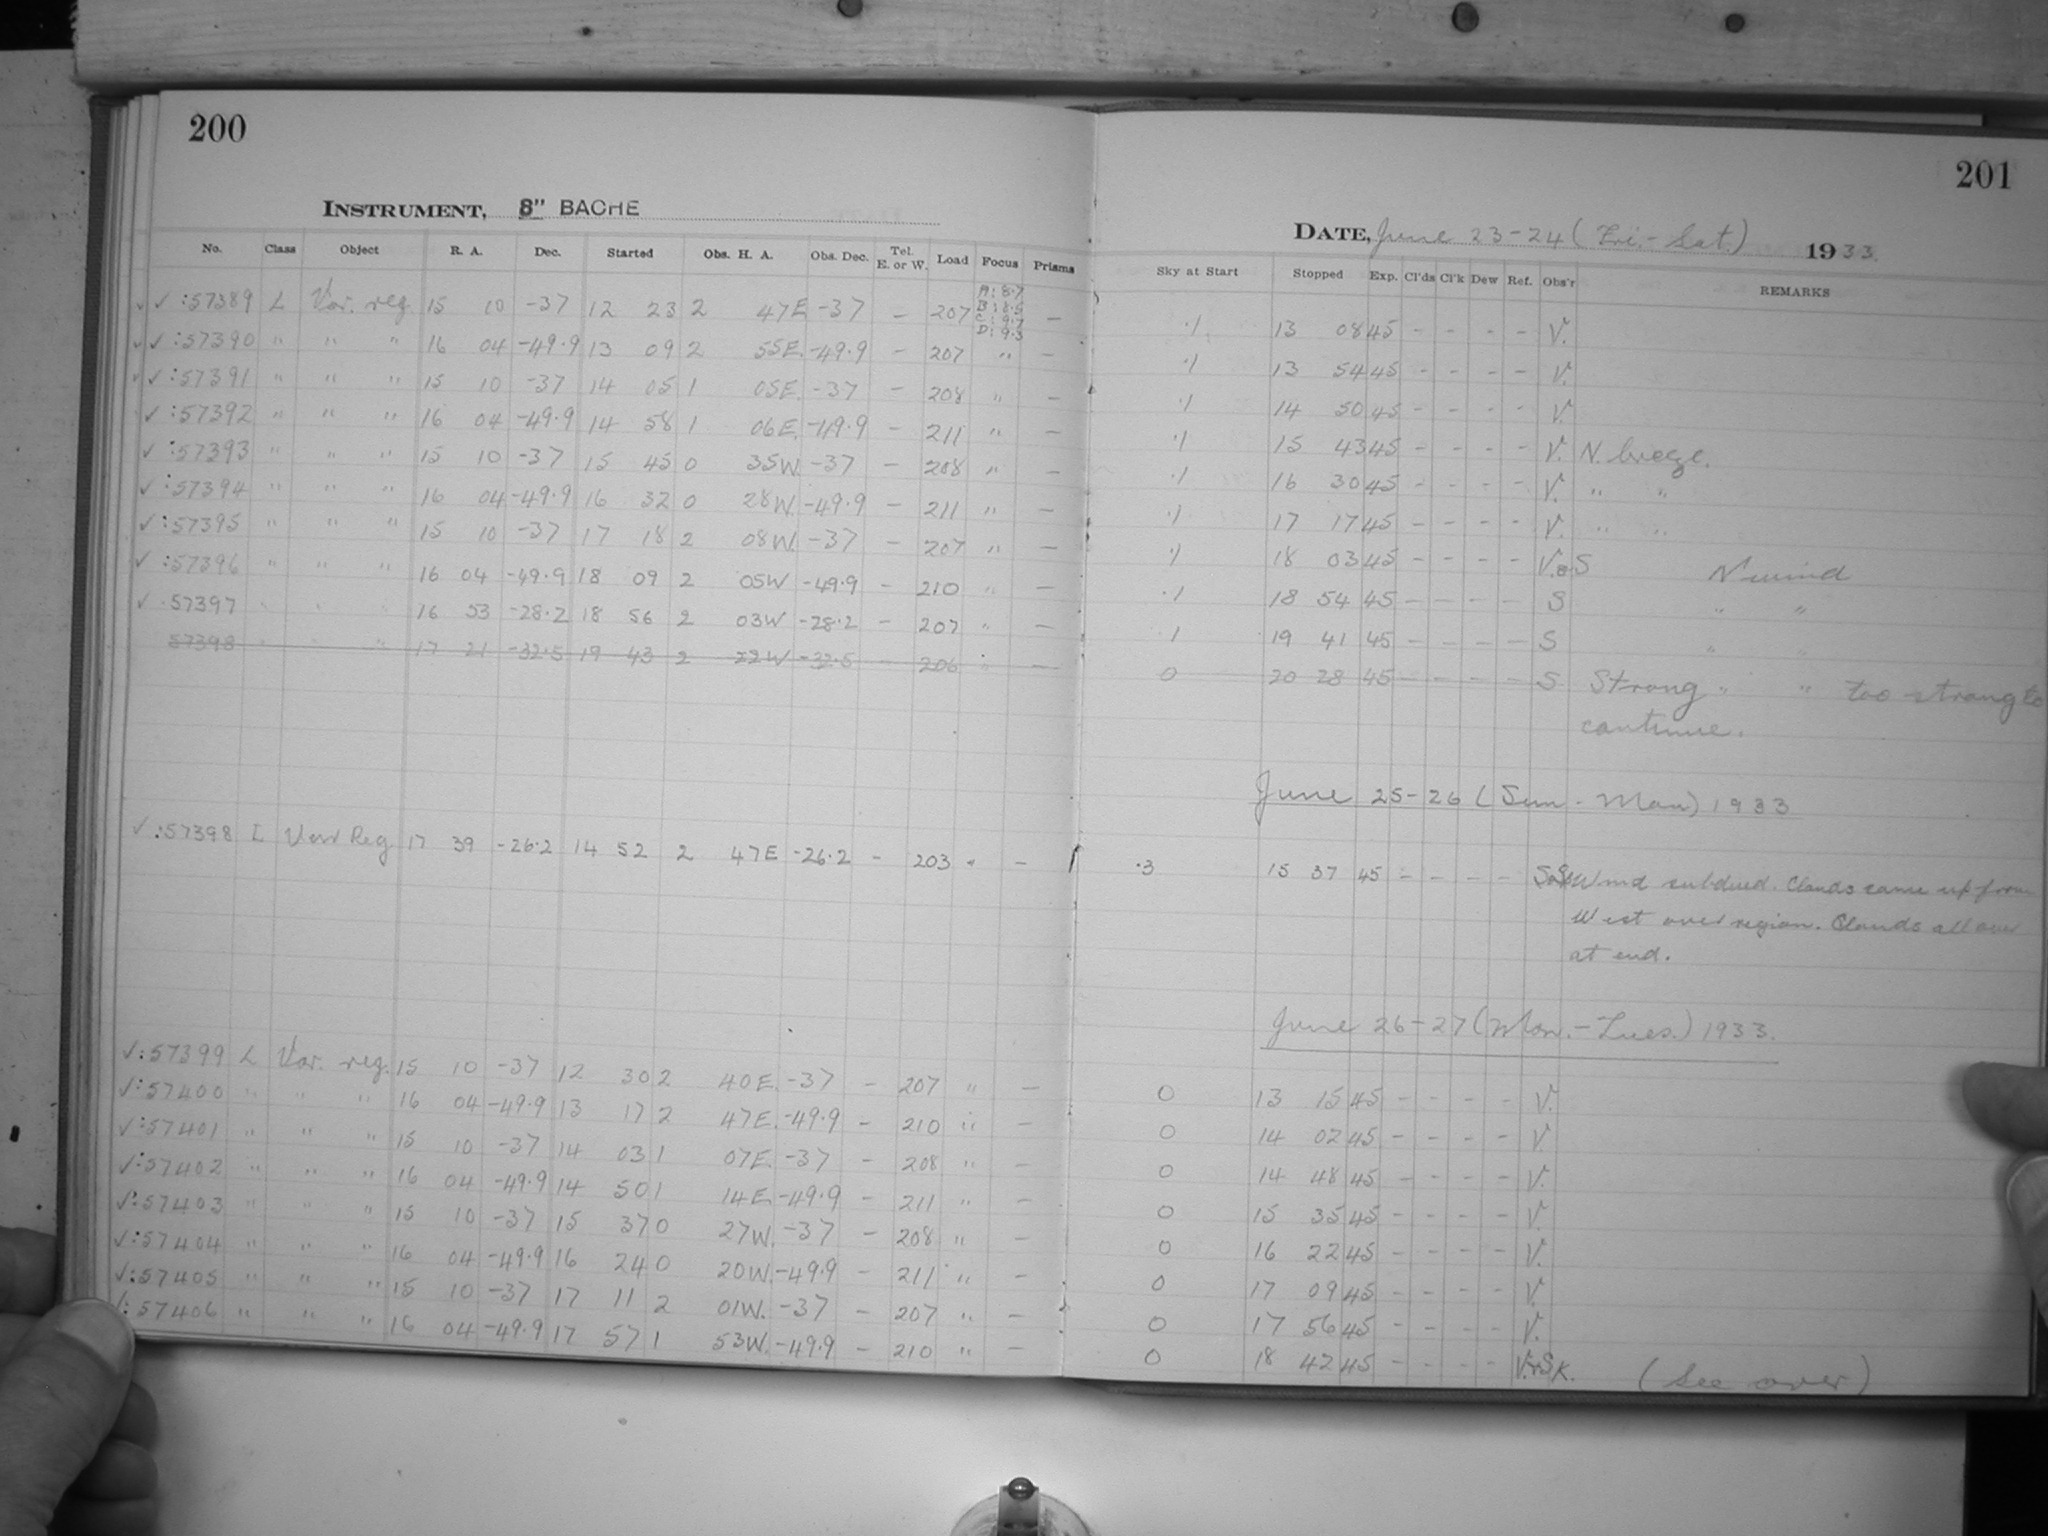 200
INSTRUMENT, 8" BACHE
No. Class Object R. A. Dec. Started Obs. H. A. Obs. Dec. Tel. E. or W. Load Focus Prisms
✓ ✓ :57389 L Var. reg. 15 10 -37 12 23 2 47E -37 - 207 A: 8.7 B: 8.5 C: 9.7 D: 9.3 -
✓ ✓ :57390 " " " 16 04 -49.9 13 09 2 55E. -49.9 - 207 " -
✓ ✓ :57391 " " " 15 10 -37 14 05 1 05E. -37 - 208 " -
✓ :57392 " " " 16 04 -49.9 14 58 1 06E. -49.9 - 211 " -
✓ :57393 " " " 15 10 -37 15 45 0 35W. -37 - 208 " -
✓ :57394 " " " 16 04 -49.9 16 32 0 28W. -49.9 - 211 " -
✓ :57395 " " " 15 10 -37 17 18 2 08W. -37 - 207 " -
✓ :57396 " " " 16 04 -49.9 18 09 2 05W -49.9 - 210 " -
✓ .57397 " " " 16 53 -28.2 18 56 2 03W -28.2 - 207 " -
57398 " " " 17 21 -32.5 19 43 2 22W -32.5 - 206 " -
✓ :57398 L Var Reg 17 39 -26.2 14 52 2 47E -26.2 - 203 " -
✓ :57399 L Var. reg. 15 10 -37 12 30 2 40E. -37 - 207 " -
✓ :57400 " " " 16 04 -49.9 13 17 2 47E. -49.9 - 210 " -
✓ :57401 " " " 15 10 -37 14 03 1 07E. -37 - 208 " -
✓ :57402 " " " 16 04 -49.9 14 50 1 14E. -49.9 - 211 " -
✓ :57403 " " " 15 10 -37 15 37 0 27W. -37 - 208 " -
✓ :57404 " " " 16 04 -49.9 16 24 0 20W. -49.9 - 211 " -
✓ :57405 " " " 15 10 -37 17 11 2 01W. -37 - 207 " -
✓ :57406 " " " 16 04 -49.9 17 57 1 53W. -49.9 - 210 " -
201
DATE, June 23-24 (Fri.-Sat.) 1933.
Sky at Start Stopped Exp. Cl'ds Cl'k Dew Ref. Obs'r REMARKS
.1 13 08 45 - - - - V.
.1 13 54 45 - - - - V.
.1 14 50 45 - - - - V.
.1 15 43 45 - - - - V. N. breeze.
.1 16 30 45 - - - - V. " "
.1 17 17 45 - - - - V. " "
.1 18 03 45 - - - - V.&S N wind
.1 18 54 45 - - - - S " "
.1 19 41 45 - - - - S " "
0 20 28 45 - - - - S Strong " " too strong to
continue.
June 25-26 (Sun - Mon) 1933
.3 15 37 45 - - - - Wind subdued. Clouds came up from
West over region. Clouds all over
at end.
June 26-27 (Mon.-Tues.) 1933.
0 13 15 45 - - - - V.
0 14 02 45 - - - - V
0 14 48 45 - - - - V.
0 15 35 45 - - - - V.
0 16 22 45 - - - - V.
0 17 09 45 - - - - V.
0 17 56 45 - - - - V.
0 18 42 45 - - - - V.&SK. (See over)